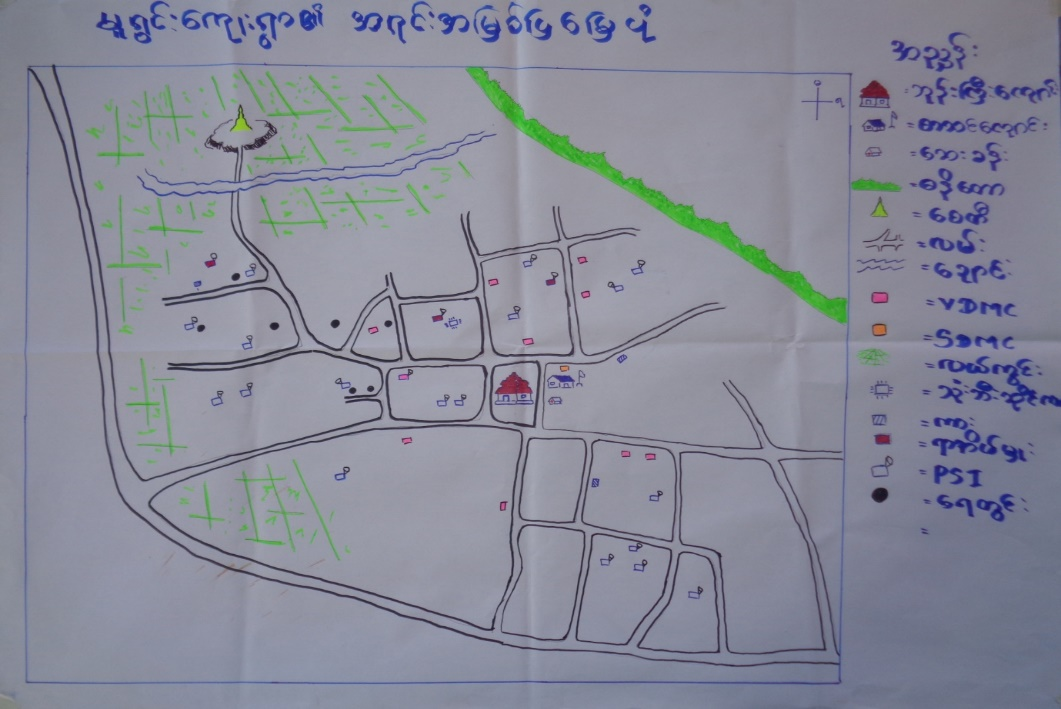 မူရွင်းကျေးရွာ၏ အရင်းအမြစ်ပြမြေပုံ
အညွှန်း
= ဘုန်းကြီးကျောင်း
= စာသင်ကျောင်း
= ဆေးခန်း
= စေတီ
= လမ်း
= ချောင်း
= VDMC
= SDMC
= လယ်ကွင်း
= PSI
= ရေတွင်း
=